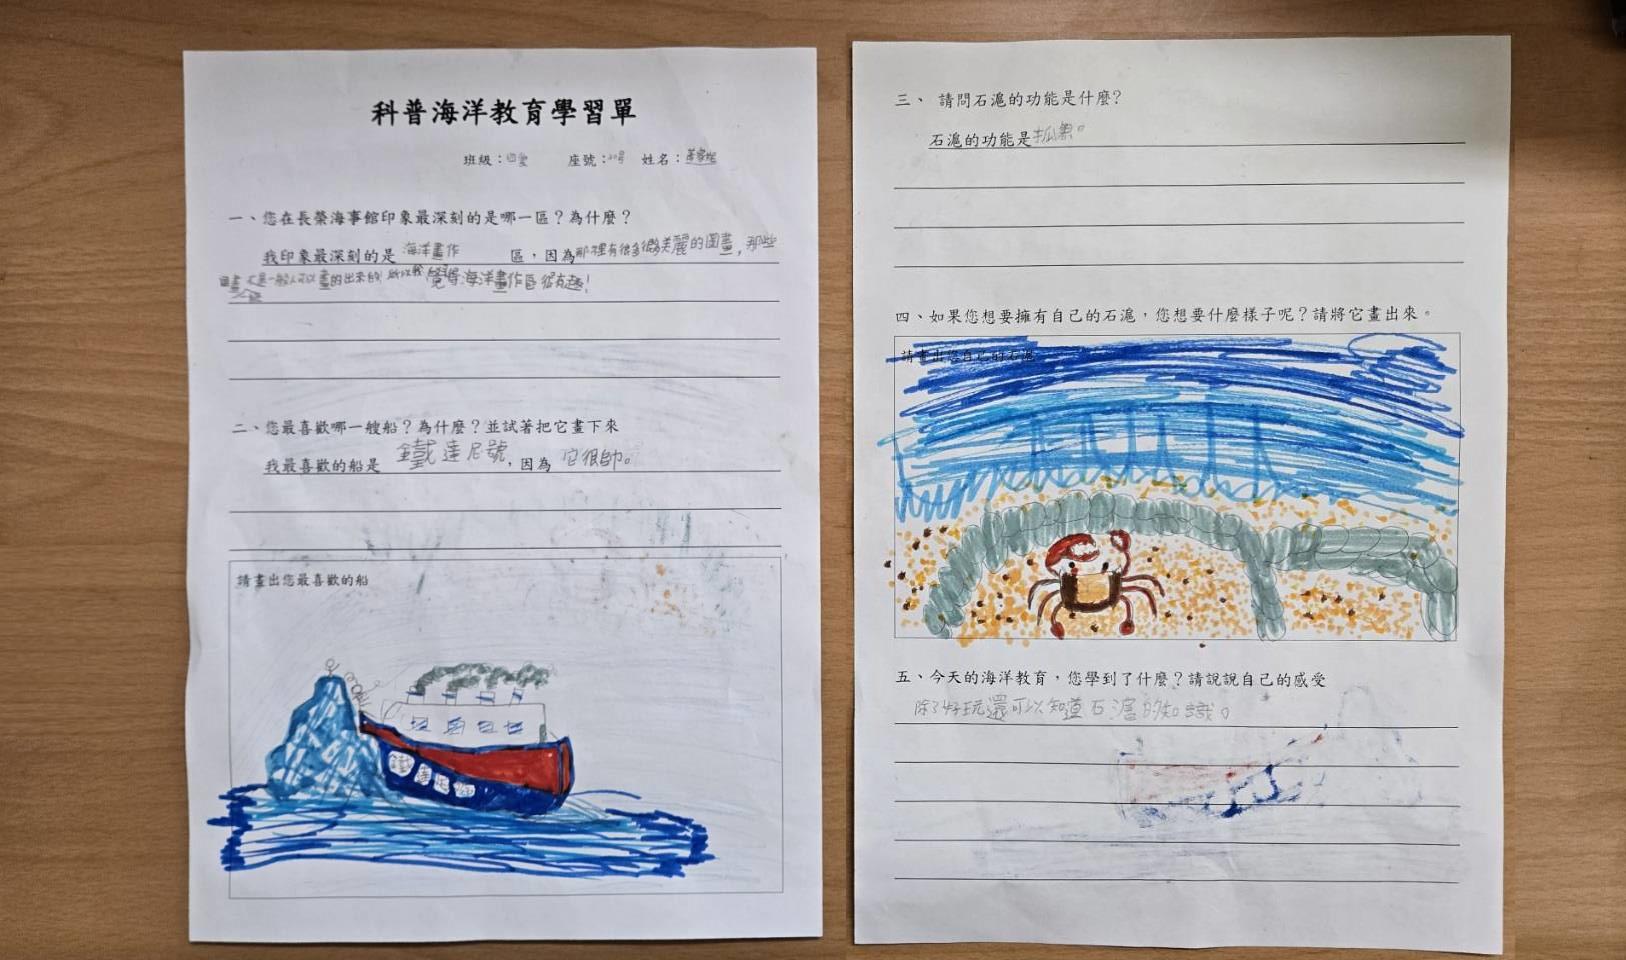 科普海洋教育學習單
班級：四愛 座號：20号 姓名：
一、您在長榮海事館印象最深刻的是哪一區？為什麼？
我印象最深刻的是 海洋畫作 區，因為那裡有很多很美麗的圖畫，那些
圖畫 不是一般人可以畫的出來的！所以我覺得海洋畫作區很有趣！
二、您最喜歡哪一艘船？為什麼？並試著把它畫下來
我最喜歡的船是 鐵達尼號，因為 它很帥。
請畫出您最喜歡的船
鐵達尼號
三、 請問石滬的功能是什麼？
石滬的功能是抓魚。
四、如果您想要擁有自己的石滬，您想要什麼樣子呢？請將它畫出來。
請畫出您自己的石滬
五、今天的海洋教育，您學到了什麼？請說說自己的感受
除了好玩還可以知道石滬的知識。